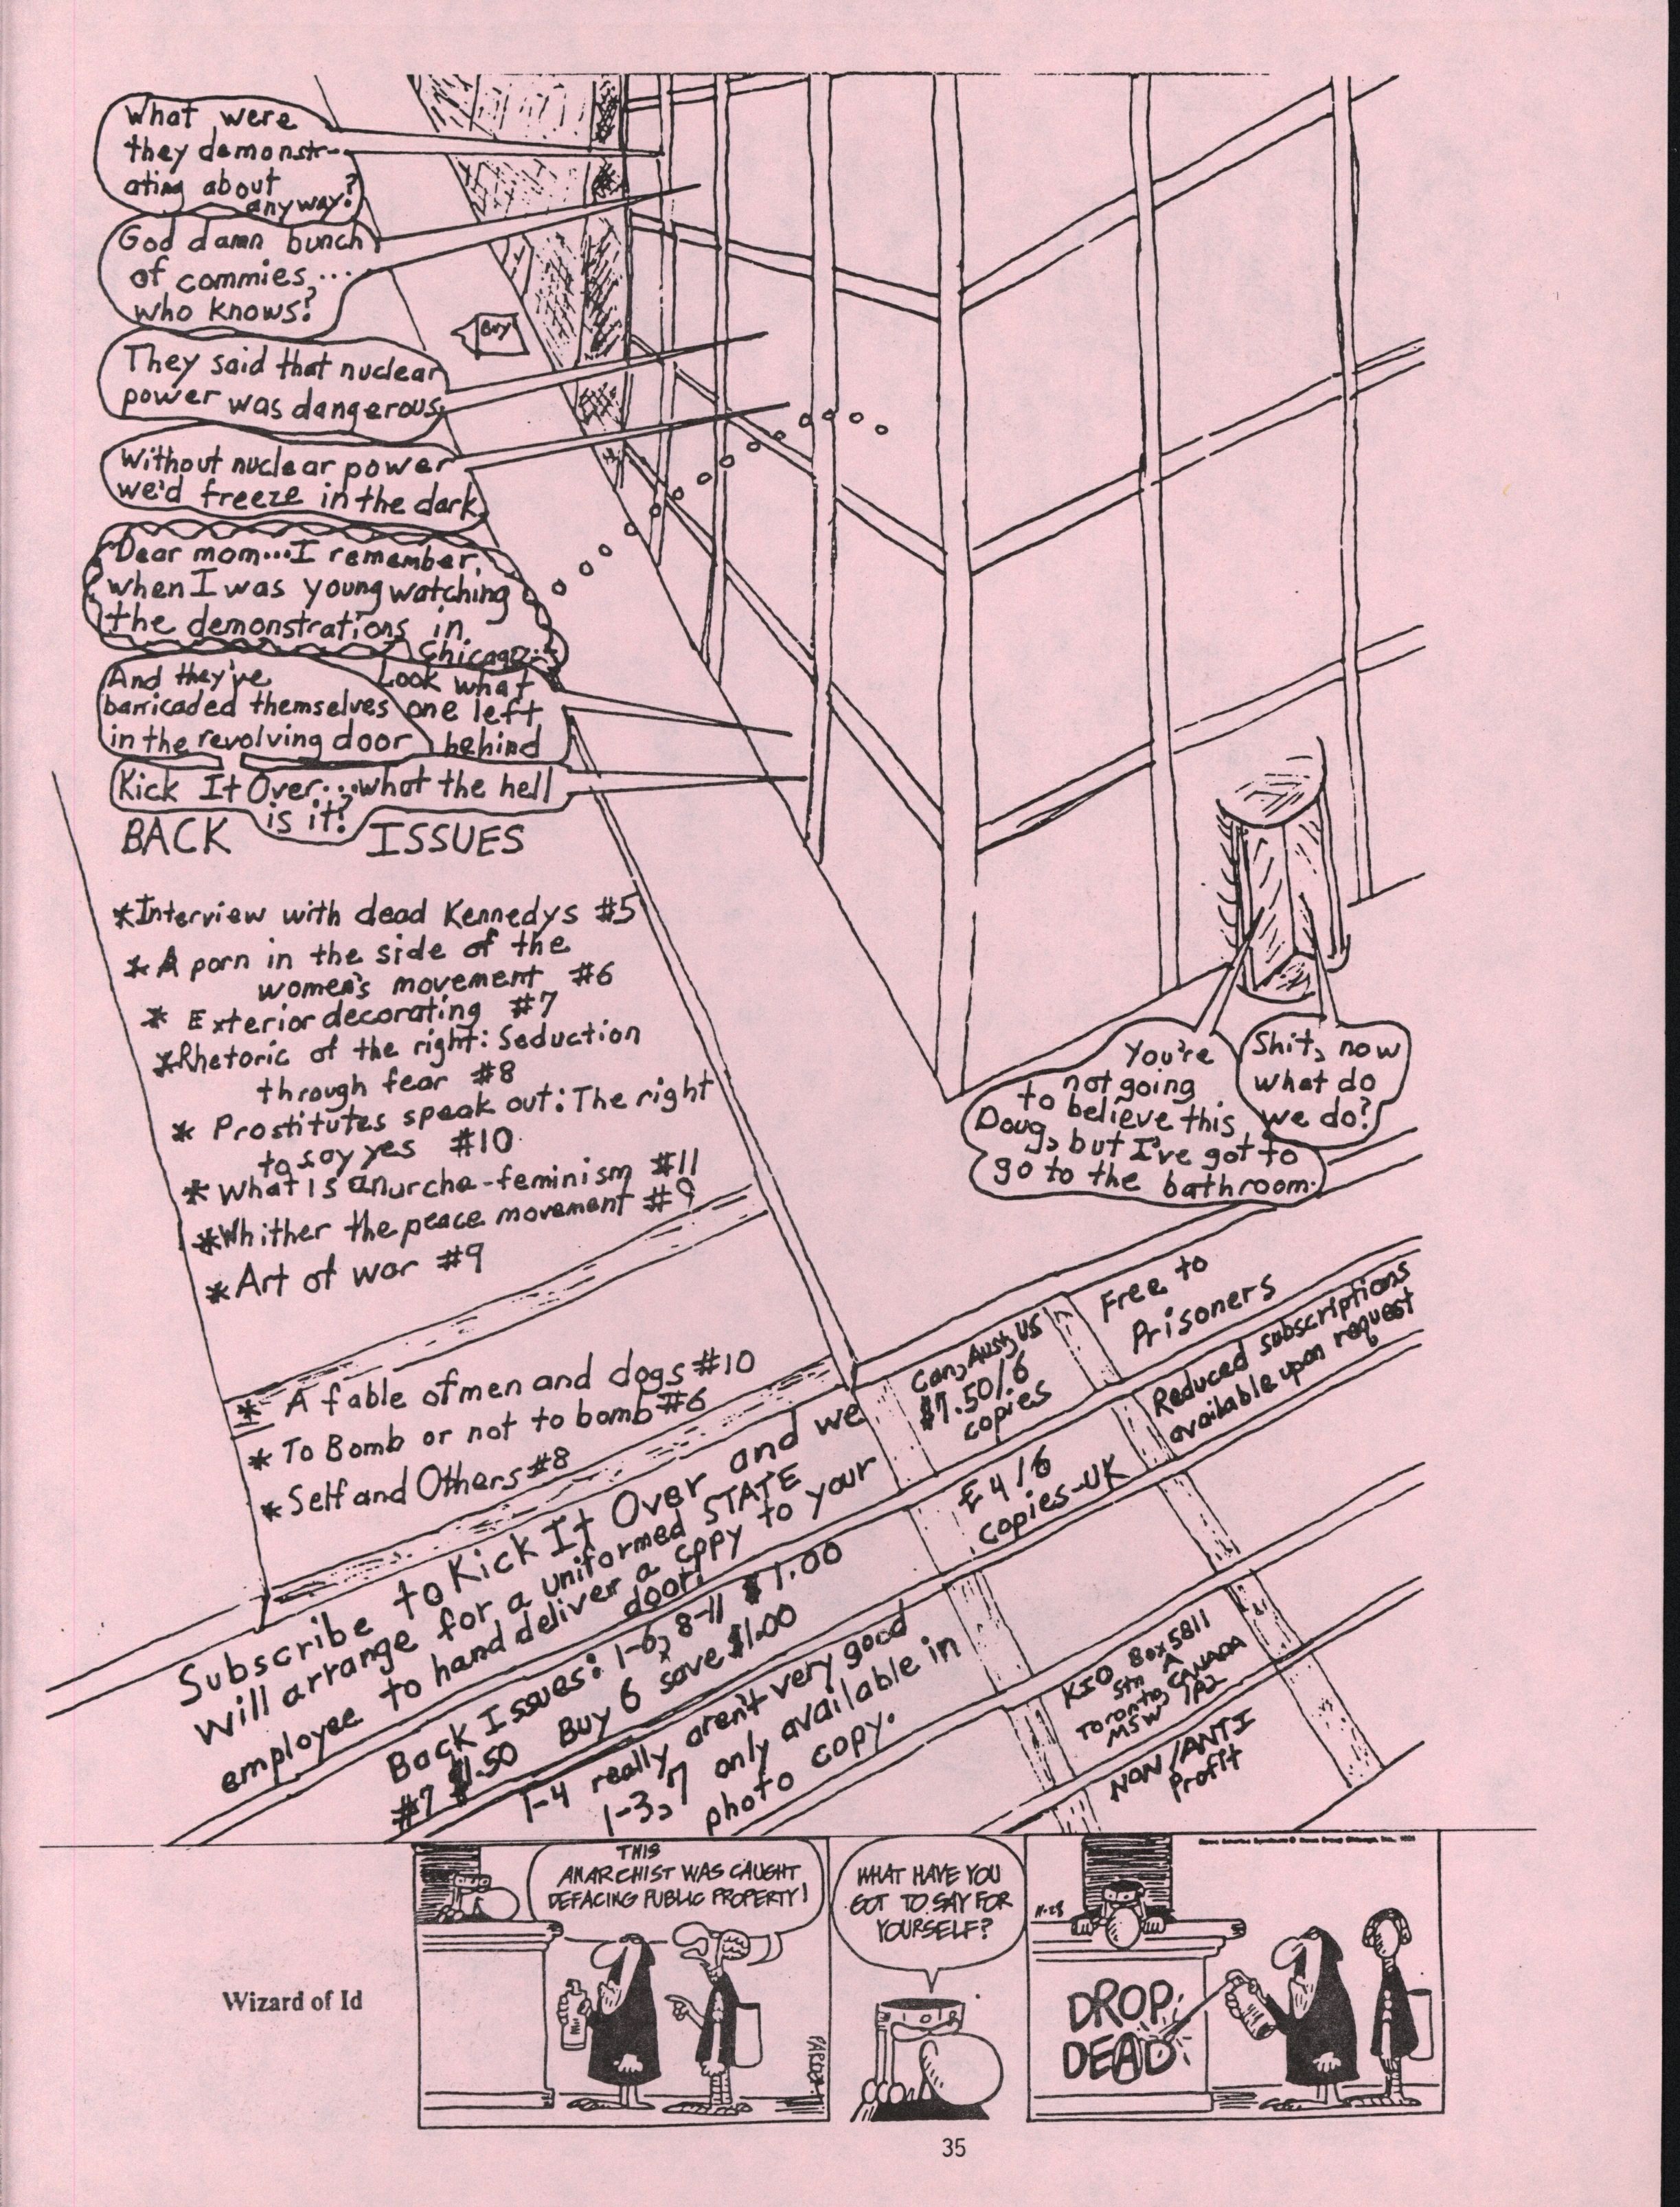 What were
they demonstr-
ating about
anyway?
God damn bunch
of commies,...
who knows?
Buy
They said that nuclear
power was dangerous.
Without nuclear power
we'd freeze in the dark.
Dear mom...I remember,
when I was young watching
the demonstrations in
Chicago...
And they've
barricaded themselves
in the revolving door
Look what
one left
behind
Kick It Over...what the hell
is it?
BACK ISSUES
*Interview with dead Kennedys #5
*A porn in the side of the
women's movement #6
* Exterior decorating #7
*Rhetoric of the right: Seduction
through fear #8
* Prostitutes speak out: The right
to say yes #10
*What Is anarcha-feminism #11
*Whither the peace movement #9
*Art of war #9
* A fable of men and dogs #10
* To Bomb or not to bomb #6
* Self and Others #8
You're
not going
to believe this
Doug, but I've got to
go to the bathroom.
Shit, now
what do
we do?
Subscribe to Kick It Over and we
will arrange for a uniformed STATE
employee to hand deliver a copy to your
door!
Can, Aust, US
$7.50/6
copies
Free to
Prisoners
£4/6
copies-UK
Reduced subscriptions
available upon request
Back Issues: 1-6, 8-11 $1.00
#7 $1.50 Buy 6 save $1.00
1-4 really aren't very good
1-3, 7 only available in
photo copy.
KIO Box 5811
Stn A
Toronto, CANADA
M5W 1P2
NON/ANTI
Profit
Wizard of Id
THIS
ANARCHIST WAS CAUGHT
DEFACING PUBLIC PROPERTY!
PARKER
WHAT HAVE YOU
GOT TO SAY FOR
YOURSELF?
11-28
DROP
DEAD
35